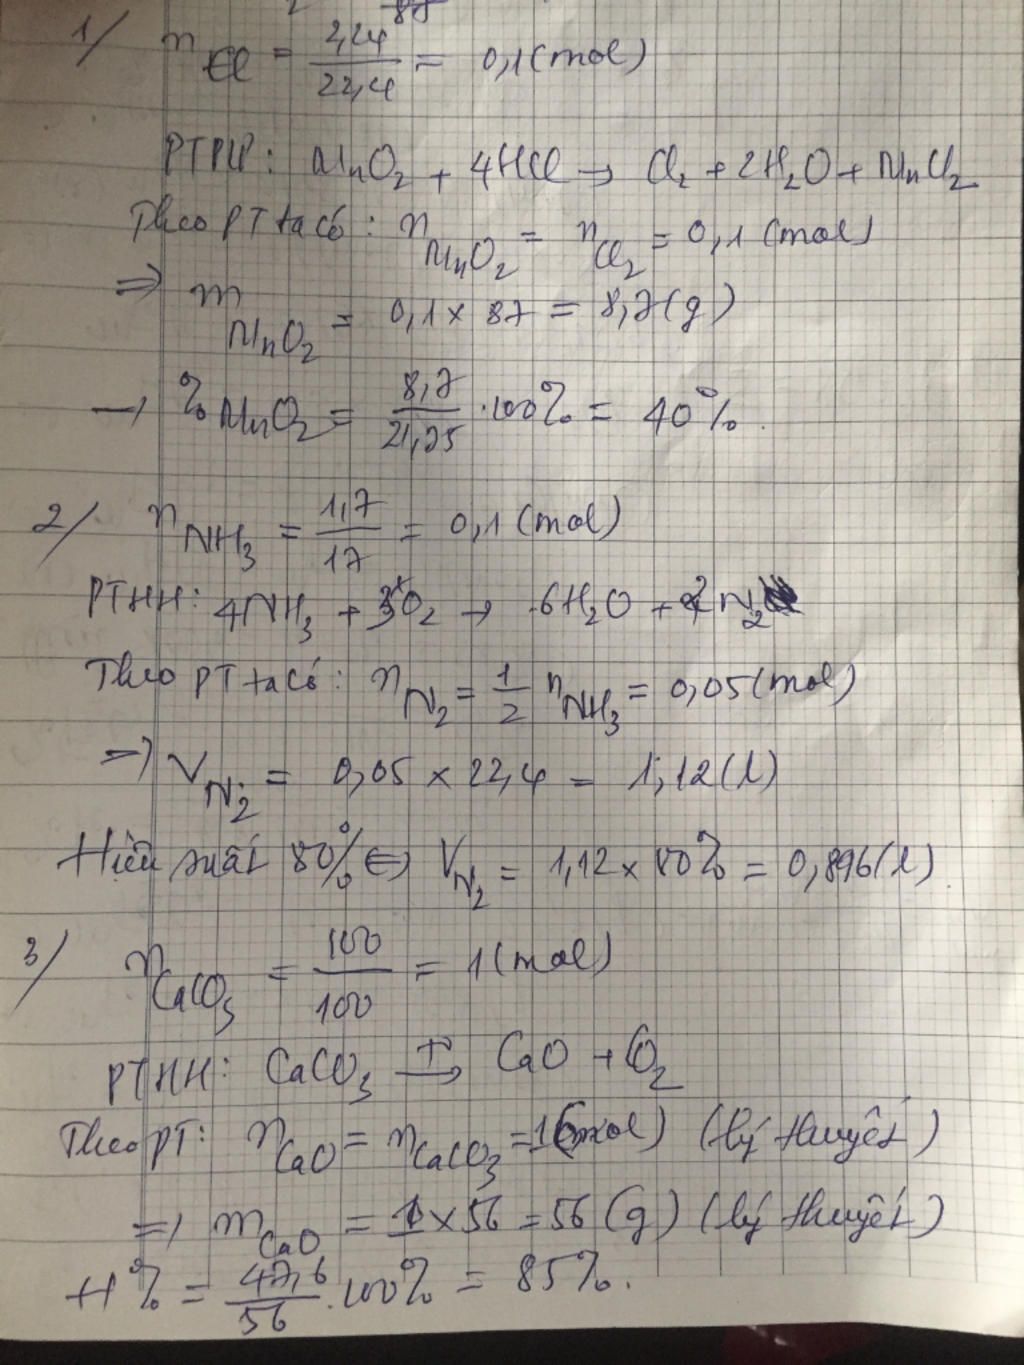 1/ n Cl = 2,24/22,4 = 0,1 (mol)
PTPU: MnO₂ + 4HCl → Cl₂ + 2H₂O + MnCl₂
Theo PT ta có: n MnO₂ = n Cl₂ = 0,1 (mol)
⇒ m MnO₂ = 0,1 × 87 = 8,7 (g)
→ % MnO₂ = 8,7/21,75 . 100% = 40%.
2/ n NH₃ = 1,7/17 = 0,1 (mol)
PTHH: 4NH₃ + 3O₂ → 6H₂O + 2N₂
Theo PT ta có: n N₂ = 1/2 n NH₃ = 0,05 (mol)
⇒ V N₂ = 0,05 × 22,4 = 1,12 (l)
Hiệu suất 80% ⇔ V N₂ = 1,12 × 80% = 0,896 (l)
3/ n CaCO₃ = 100/100 = 1 (mol)
PTHH: CaCO₃ → CaO + CO₂
Theo PT: n CaO = n CaCO₃ = 1 (mol) (lý thuyết)
⇒ m CaO = 1 × 56 = 56 (g) (lý thuyết)
H% = 47,6/56 . 100% = 85%.